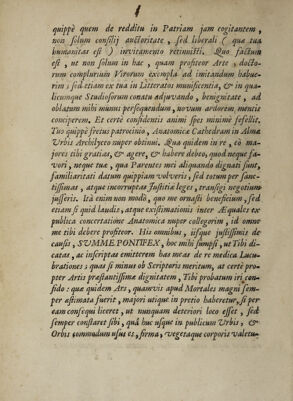 quippè quem de redditu in Patriam jam cogitantem,
non solum consilij auctoritate, sed liberali ( qua tua
humanitas est ) invitamento retinuisti. Quo factum
est, ut non solum in hac, quam profiteor Arte, docto-
rum complurium Virorum exempla ad imitandum habue-
rim; sed etiam ex tua in Litteratos munificentia, & in qua-
licumque Studiosorum conatu adjuvando, benignitate, ad
oblatum mihi munus persequendum, novum ardorem mentis
conciperem. Et certè confidentis animi spes minimè fefellit.
Tuo quippè fretus patrocinio, Anatomicæ Cathedram in Alma
Urbis Archilyceo nuper obtinui. Qua quidem in re, cò ma-
jores tibi gratias, & agere, & habere debeo, quod neque fa-
vori, neque tuæ, qua Parentes mei aliquando dignati sunt,
familiaritati datum quippiam volueris, sed totum per sanc-
tissimas, atque incorruptas Justitiæ leges, transigi negotium
jusseris. Ità enim non modò, quo me ornasti beneficium, sed
etiam si quid laudis, atque existimationis inter Æquales ex
publica concertatione Anatomica nuper collegerim, id omne
me tibi debere profiteor. His omnibus, iisque justissimis de
causis, SUMME PONTIFEX, hoc mihi sumpsi, ut Tibi di-
catas, ac inscriptas emitterem has meas de re medica Lucu-
brationes; quas si minus ob Scriptoris meritum, at certè pro-
pter Artis præstantissimæ dignitatem, Tibi probatum iri con-
fido: quæ quidem Ars, quamvis apud Mortales magni sem-
per æstimata fuerit, majori utique in pretio haberetur, si per
eam consequi liceret, ut nunquam deteriori loco esset, sed
semper constaret sibi, quâ huc usque in publicum Urbis, &
Orbis commodum usus es, firma, vegetaque corporis valetu-